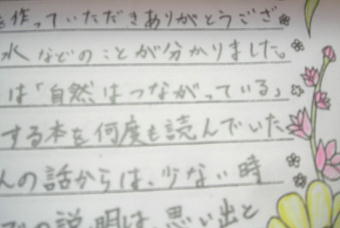 作っていただきありがとうござ
水などのことが分かりました。
は「自然はつながっている」
する本を何度も読んでいた
の話からは、少ない時
の説明は、思い出と